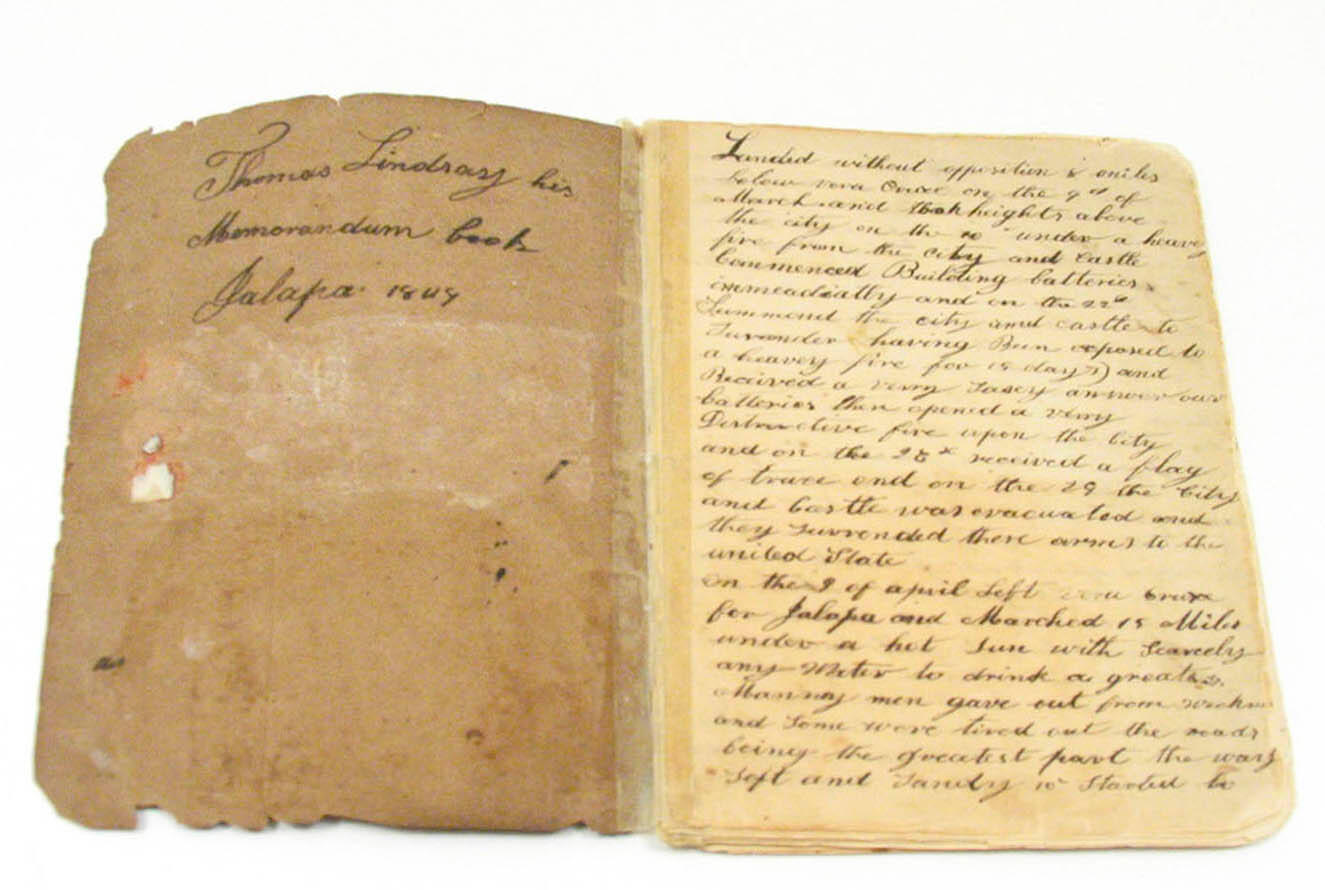 Thomas Lindsay his
Memorandum book
Jalapa 1848
Landed without opposition 8 miles
below vera Cruce on the 9th of
March and took heights above
the city on the 10 under a heavy
fire from the City and Castle
Commenced Building batteries
immeadiatly and on the 22d
Summond the city and castle to
Surrender having Been exposed to
a heavey fire for 15 days) and
Received a verry Sasey answer our
batteries then opened a verry
Distructive fire upon the City
and on the received a flag
of truce and on the 29 the City
and Castle was evacuated and
they Surrended there arms to the
united State
on the 9 of april Left vera cruse
for Jalapa and Marched 15 Miles
under a hot Sun with Scarcely
any Water to drink a great
Manny men gave out from
and Some were tired out the roads
being the greatest part the way
Soft and Sandy 10 Started to